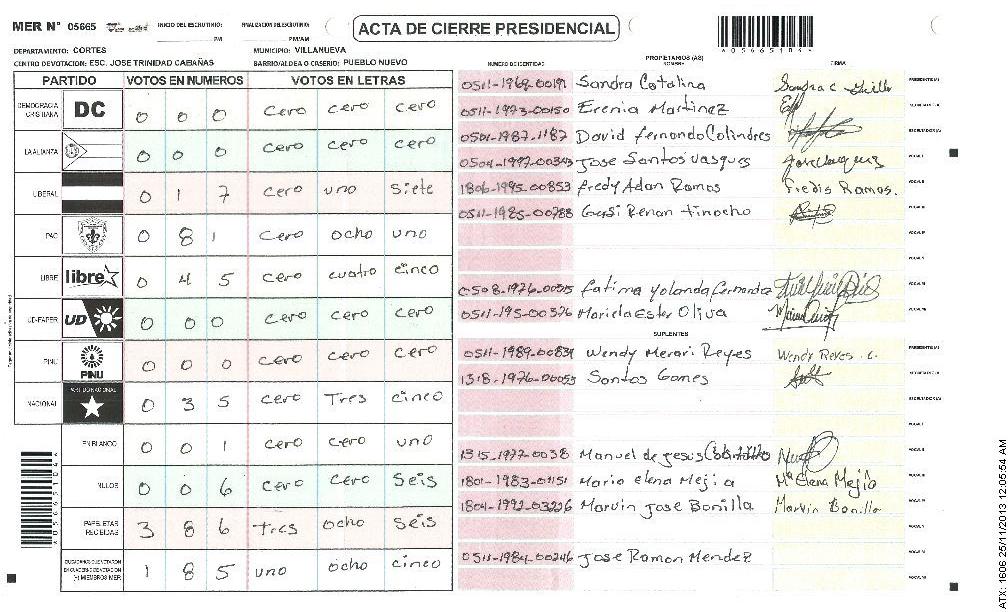 MER N° 05665 INICIO DEL ESCRUTINIO: PM FINALIZACION DEL ESCRUTINIO: PM/AM
ACTA DE CIERRE PRESIDENCIAL
DEPARTAMENTO: CORTES MUNICIPIO: VILLANUEVA
CENTRO DEVOTACION: ESC. JOSE TRINIDAD CABAÑAS BARRIO/ALDEA O CASERIO: PUEBLO NUEVO
PARTIDO VOTOS EN NUMEROS VOTOS EN LETRAS
DEMOCRACIA CRISTIANA DC 0 0 0 cero cero cero
LA ALIANZA 0 0 0 cero cero cero
LIBERAL 0 1 7 cero uno siete
PAC 0 8 1 cero ocho uno
LIBRE libre 0 4 5 cero cuatro cinco
UD-FAPER UD 0 0 0 cero cero cero
PINU PINU 0 0 0 cero cero cero
NACIONAL PARTIDO NACIONAL 0 3 5 cero Tres cinco
EN BLANCO 0 0 1 cero cero uno
NULOS 0 0 6 cero cero Seis
PAPELETAS RECIBIDAS 3 8 6 tres ocho seis
CIUDADANOS QUE VOTARON EN CUADERNO DE VOTACION (+) MIEMBROS MER 1 8 5 uno ocho cinco
NUMERO DE IDENTIDAD PROPIETARIOS (AS) NOMBRE FIRMA
0511-1969-00191 Sandra Catalina PRESIDENTE (A)
0511-1973-00150 Erenia Martinez SECRETARIO (A)
0501-1987-1187 David fernando Colindres ESCRUTADOR (A)
0504-1997-00343 Jose Santos Vasques VOCAL I
1806-1995-00853 fredy Adan Ramos Fredis Ramos. VOCAL II
0511-1985-00788 Gersi Renan tinocho VOCAL III
VOCAL IV
VOCAL V
0508-1976-00315 fatima yolanda fernandez VOCAL VI
0511-195-00376 Mariela Ester Oliva VOCAL VII
SUPLENTES
0511-1989-00839 Wendy Merari Reyes Wendy Reyes . c. PRESIDENTE (A)
1318-1976-00055 Santos Gomes SECRETARIO (A)
ESCRUTADOR (A)
VOCAL I
1315-1977-0038 Manuel de jesus VOCAL II
1801-1983-01151 Maria elena Mejia Mª Elena Mejia VOCAL III
1804-1992-03226 Marvin Jose Bonilla Marvin Bonilla VOCAL IV
VOCAL V
0511-1984-00246 Jose Ramon Mendez VOCAL VI
VOCAL VII
ATX: 1606 25/11/2013 12:05:54 AM